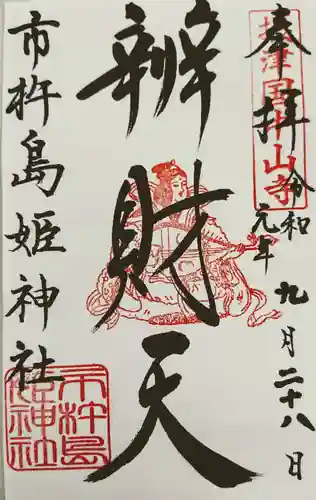 奉拝
令和元年九月二十八日
辨財天
市杵島姫神社
市杵島姫神社